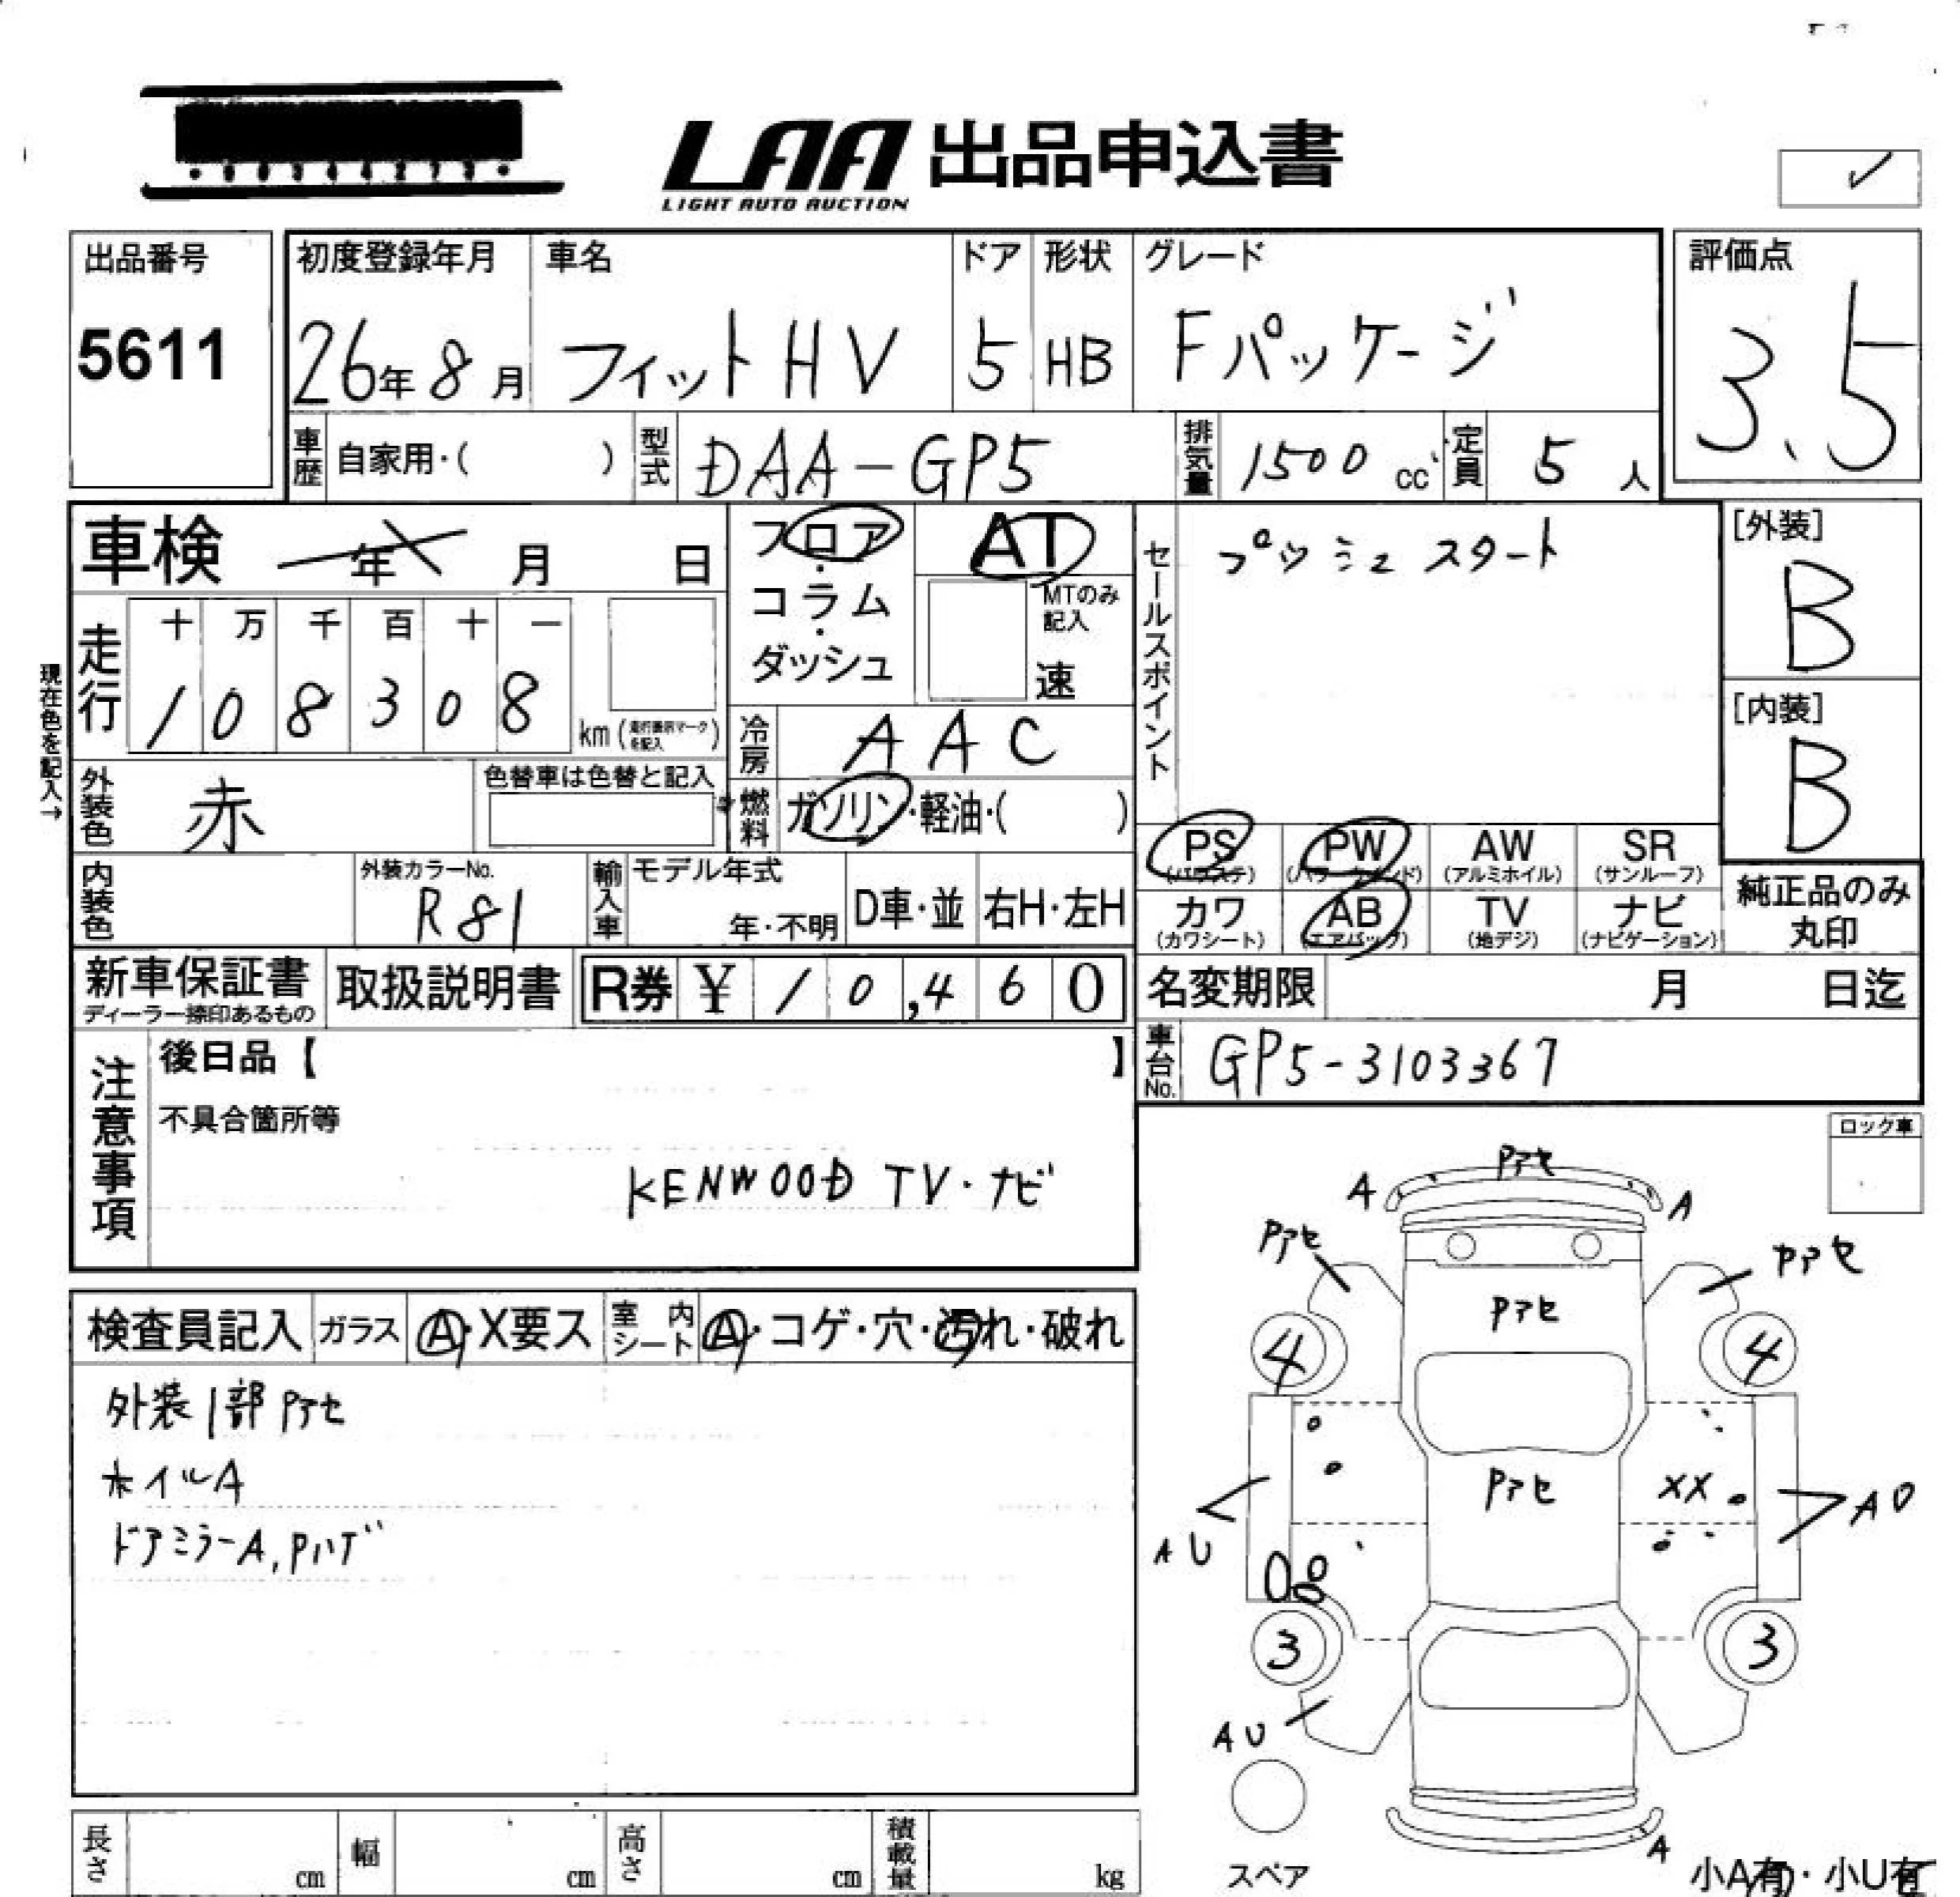 LAA 出品申込書
LIGHT AUTO AUCTION
出品番号
5611
初度登録年月
26年 8月
車名
フィットHV
ドア
5
形状
HB
グレード
Fパッケージ
評価点
3.5
車歴 自家用・( )
型式 DAA-GP5
排気量 1500 cc
定員 5 人
車検 年 月 日
フロア・コラム・ダッシュ
AT
MTのみ記入
速
セールスポイント
プッシュスタート
[外装]
B
[内装]
B
現在色を記入→
走行
十 万 千 百 十 一
1 0 8 3 0 8
km (走行表示マークを記入)
冷房 AAC
外装色 赤
色替車は色替と記入
燃料 ガソリン・軽油・( )
PS AW SR PW
(パワステ) (パワーウインド) (アルミホイル) (サンルーフ)
カワ AB TV ナビ
(カワシート) (エアバッグ) (地デジ) (ナビゲーション)
純正品のみ
丸印
内装色
外装カラーNo.
R81
輸入車
モデル年式
年・不明
D車・並
右H・左H
新車保証書
ディーラー捺印あるもの
取扱説明書
R券 ¥ 10,460
名変期限 月 日迄
車台No. GP5-3103367
注意事項
後日品【 】
不具合箇所等
KENWOOD TV・ナビ
ロック車
Pアセ
A A
Pアセ Pアセ
Pアセ
4 4
Pアセ XX
AU AU
3 3
AU
A
スペア
小A有・小U有
検査員記入 ガラス A・X要ス 室内シート A・コゲ・穴・汚れ・破れ
外装1部Pアセ
ホイルA
ドアミラーA,Pハゲ
長さ cm 幅 cm 高さ cm 積載量 kg